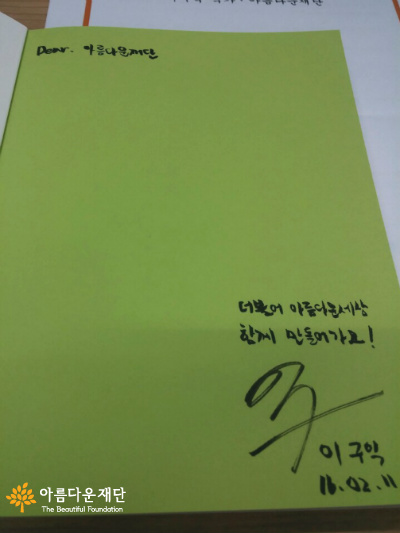 아름다운재단
Dear. 아름다운재단
더불어 아름다운세상
함께 만들어가고!
이구익
16.02.11
아름다운재단
The Beautiful Foundation